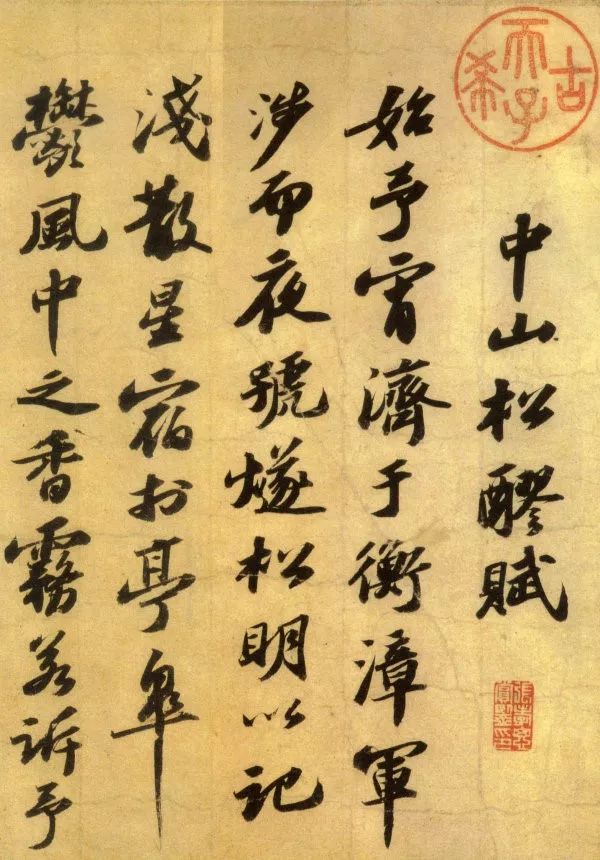 古希天子
中山松醪賦
張孝思
賞鑒印
始予宵濟于衡漳軍
涉而夜號燧松明以記
淺散星宿扵亭皐
鬱風中之香霧若訴予